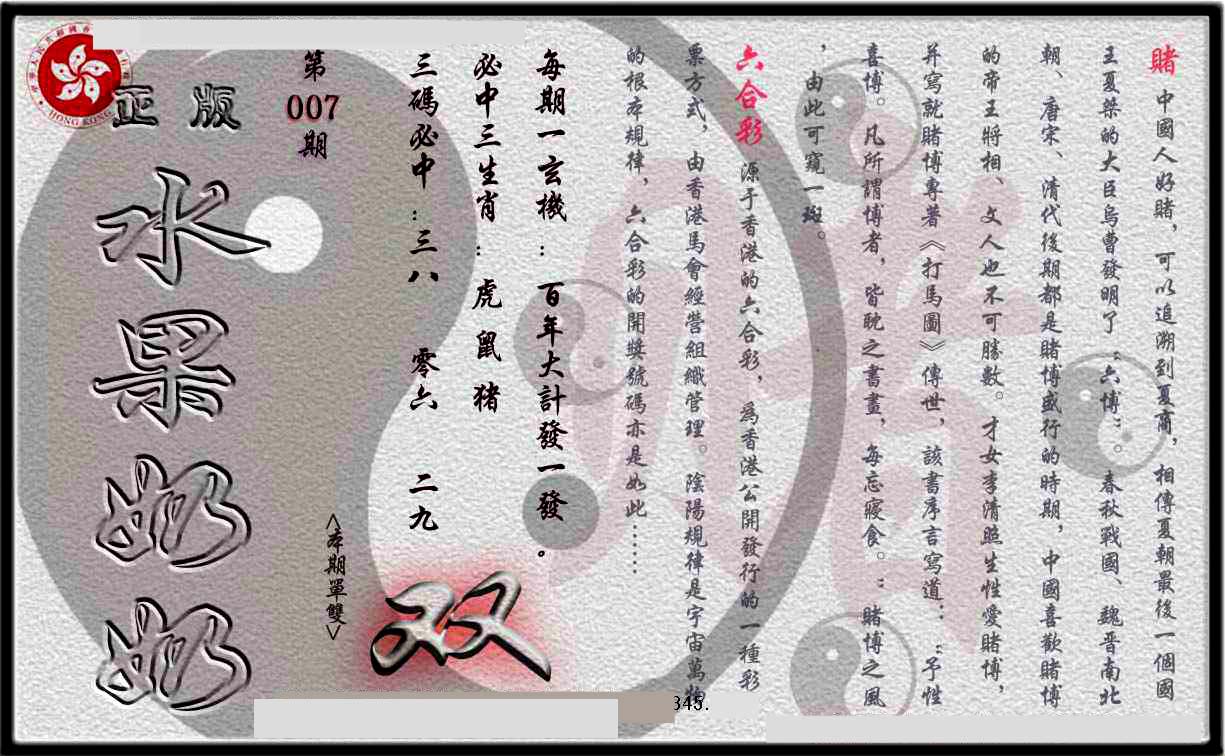 賭 中國人好賭，可以追溯到夏商，相傳夏朝最後一個國
王夏桀的大臣烏曹發明了“六博”。春秋戰國、魏晋南北
朝、唐宋、清代後期都是賭博盛行的時期，中國喜歡賭博
的帝王將相、文人也不可勝數。才女李清照生性愛賭博，
并寫就賭博專著《打馬圖》傳世，該書序言寫道：“予性
喜博。凡所謂博者，皆耽之書畫，每忘寢食。”賭博之風
，由此可窺一斑。
六合彩 源于香港的六合彩，爲香港公開發行的一種彩
票方式，由香港馬會經營組織管理。陰陽規律是宇宙萬物
的根本規律，六合彩的開奬號碼亦是如此……
每期一玄機：百年大計發一發。
必中三生肖：虎 鼠 猪
三碼必中：三八 零六 二九
双
<本期單雙>
第
007
期
正版
水果奶奶
HONG KONG
345.